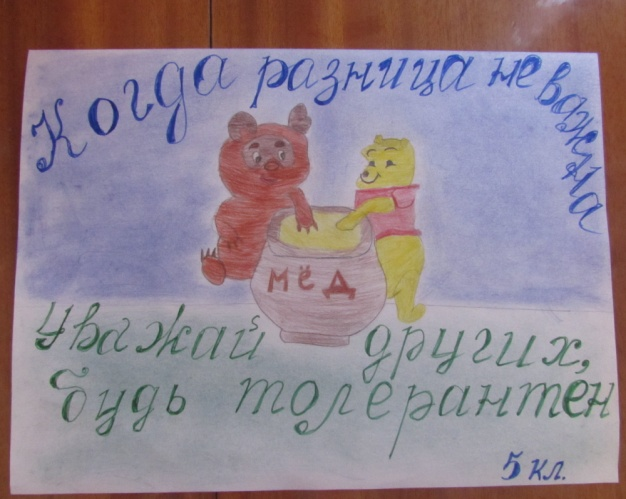 Когда разница не важна
МЁД
Уважай других,
будь толерантен
5 кл.